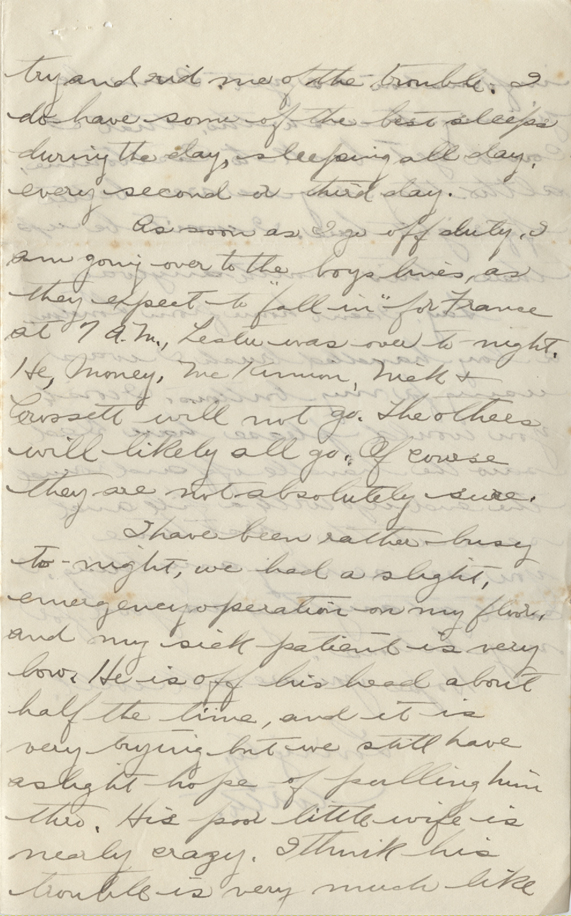 try and rid me of the trouble. I
do have some of the best sleeps
during the day, sleeping all day,
every second or third day.
As soon as I go off duty, I
am going over to the boys lines, as
they expect to "fall in" for France
at 7 A.M., Leslie was over to-night.
He, Money, McKinnon, Mek &
Crossett will not go. The others
will likely all go. Of course
they are not absolutely sure.
I have been rather busy
to-night, we had a slight,
emergency operation on my floor,
and my sick patient is very
low. He is off his head about
half the time, and it is
very trying but we still have
a slight hope of pulling him
thro. His poor little wife is
nearly crazy. I think his
trouble is very much like